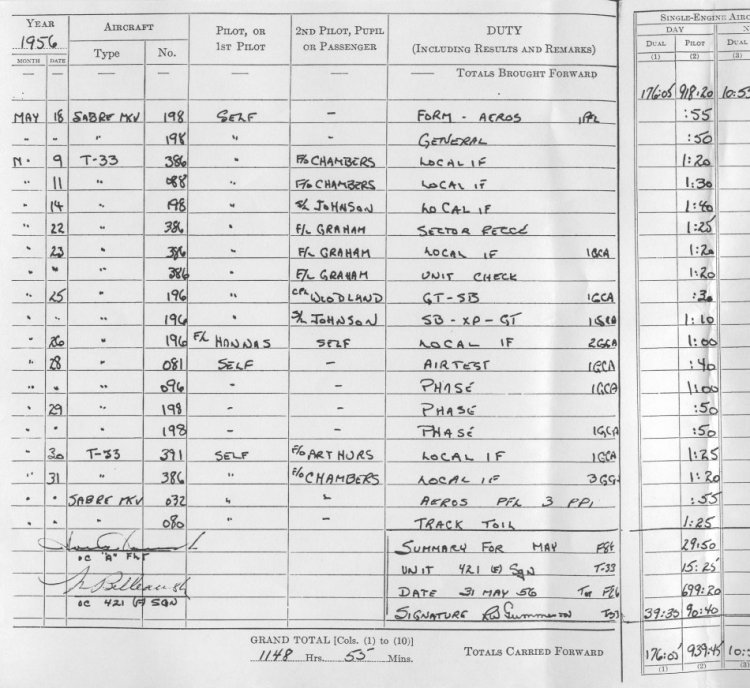 YEAR AIRCRAFT PILOT, OR 2ND PILOT, PUPIL DUTY SINGLE-ENGINE AIRC
1956 1ST PILOT OR PASSENGER (INCLUDING RESULTS AND REMARKS) DAY N
MONTH DATE Type No. DUAL PILOT DUAL
(1) (2) (3)
— — — — — — — TOTALS BROUGHT FORWARD
176:05 918:20 10:55
MAY 18 SABRE MKV 198 SELF — FORM - AEROS :55
" " " 198 " " GENERAL :50
9 T-33 386 " F/O CHAMBERS LOCAL IF 1:20
" 11 " 088 " F/O CHAMBERS LOCAL IF 1:30
" 14 " 198 " S/L JOHNSON LOCAL IF 1:40
" 22 " 386 " F/L GRAHAM SECTOR RECCE 1:25
" 23 " 386 " F/L GRAHAM LOCAL IF 1GCA 1:20
" " " 386 " F/L GRAHAM UNIT CHECK 1:20
" 25 " 196 " CPL WOODLAND GT-SB 1GCA :30
" " " 196 S/L JOHNSON SB-XP-GT 1GCA 1:10
" 26 " 196 F/L HANNAS SELF LOCAL IF 2GCA 1:00
" 28 " 081 SELF — AIRTEST 1GCA :40
" " " 096 - - PHASE 1GCA 1:00
" 29 " 198 - - PHASE :50
" " " 198 - - PHASE 1GCA :50
" 30 T-33 391 SELF F/O ARTHURS LOCAL IF 1GCA 1:25
" 31 " 386 " F/O CHAMBERS LOCAL IF 1:20
" " SABRE MKV 032 " " AEROS PFL 3 PPI :55
" " " 080 " - TRACK TAIL 1:25
SUMMARY FOR MAY F86 29:50
OC "A" FLT
UNIT 421 (F) SQN T-33 15:25
DATE 31 MAY 56 Tot F86 699:20
OC 421 (F) SQN
SIGNATURE T33 39:35 90:40
GRAND TOTAL [Cols. (1) to (10)]
1148 Hrs. 55 Mins. TOTALS CARRIED FORWARD 176:05 939:45 10:
(1) (2) (3)